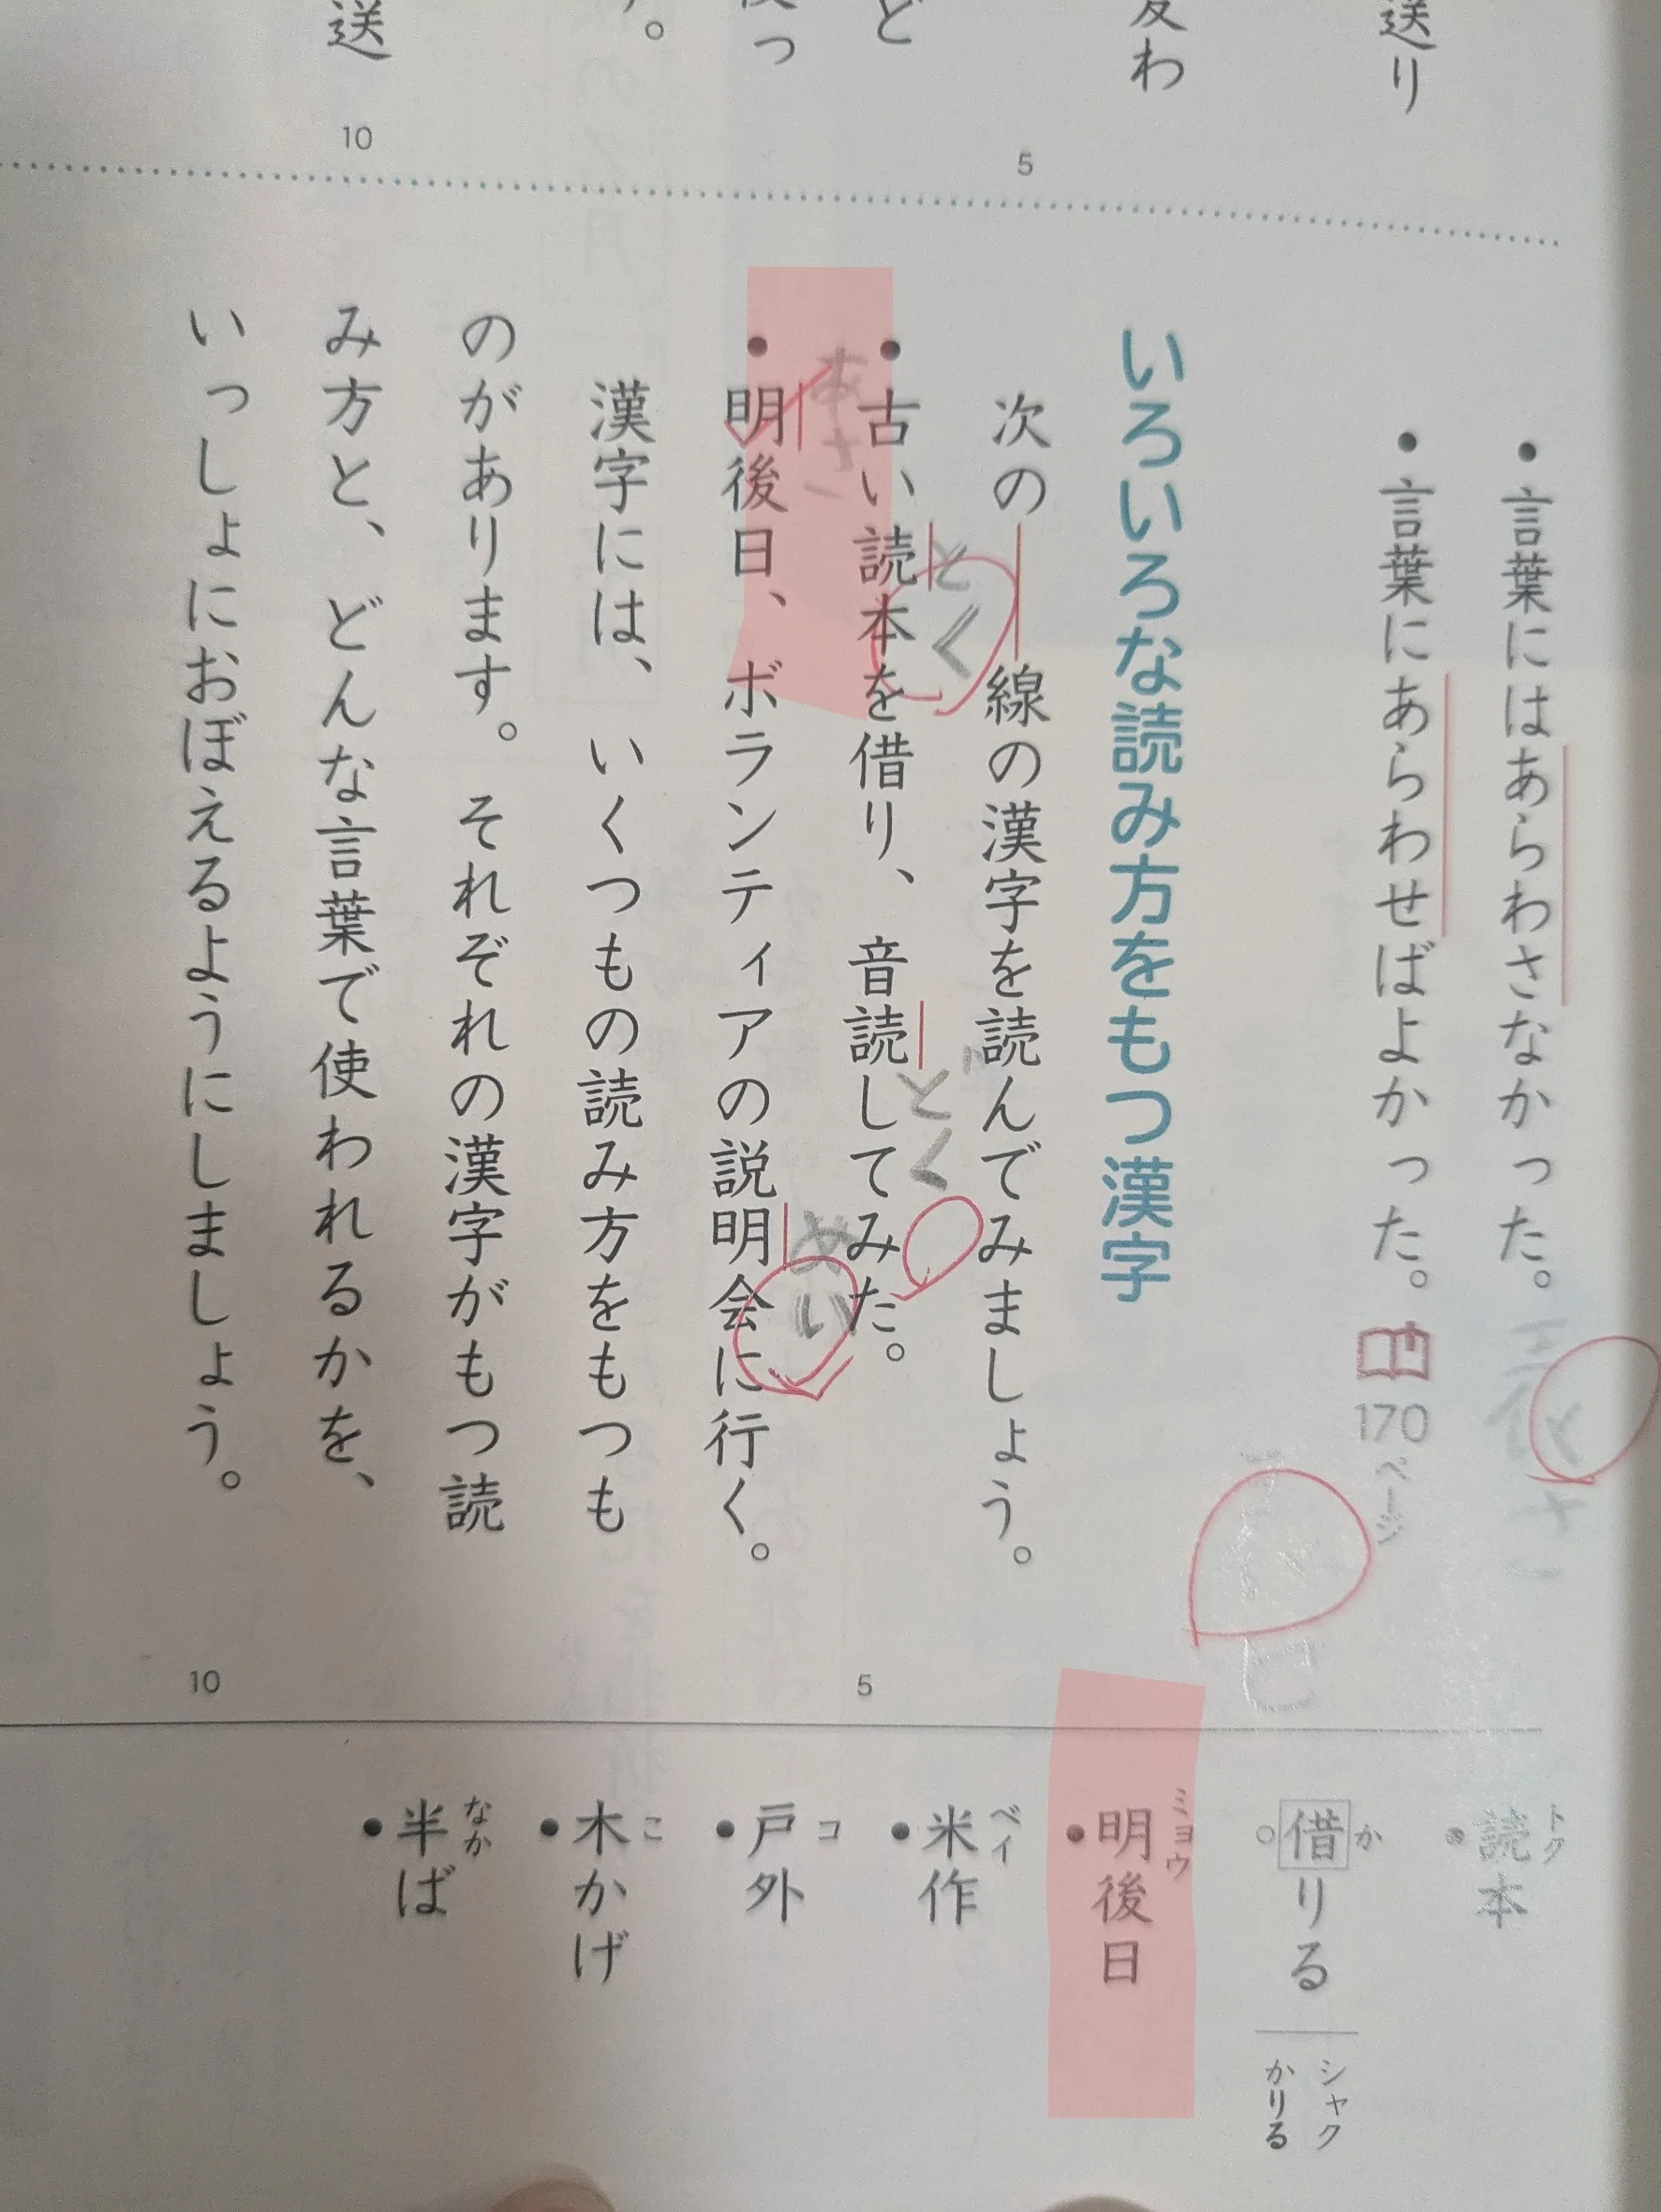 送り
変わ
ど
5
っ
。
送
10
• 言葉にはあらわさなかった。
• 言葉にあらわせばよかった。 170ページ
いろいろな読み方をもつ漢字
次の―線の漢字を読んでみましょう。
とく
とく
• 古い読本を借り、音読してみた。
5
あさ
めい
• 明後日、ボランティアの説明会に行く。
漢字には、いくつもの読み方をもつも
のがあります。それぞれの漢字がもつ読
み方と、どんな言葉で使われるかを、
いっしょにおぼえるようにしましょう。
10
トク
読本
か
借りる
シャク
かりる
ミョウ
• 明後日
ベイ
• 米作
コ
• 戸外
こ
• 木かげ
なか
• 半ば